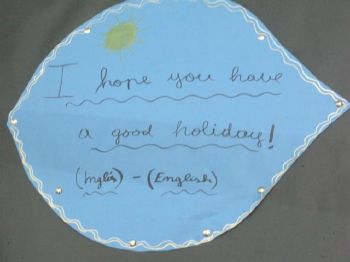 I hope you have
a good holiday!
(Inglés) - (English)